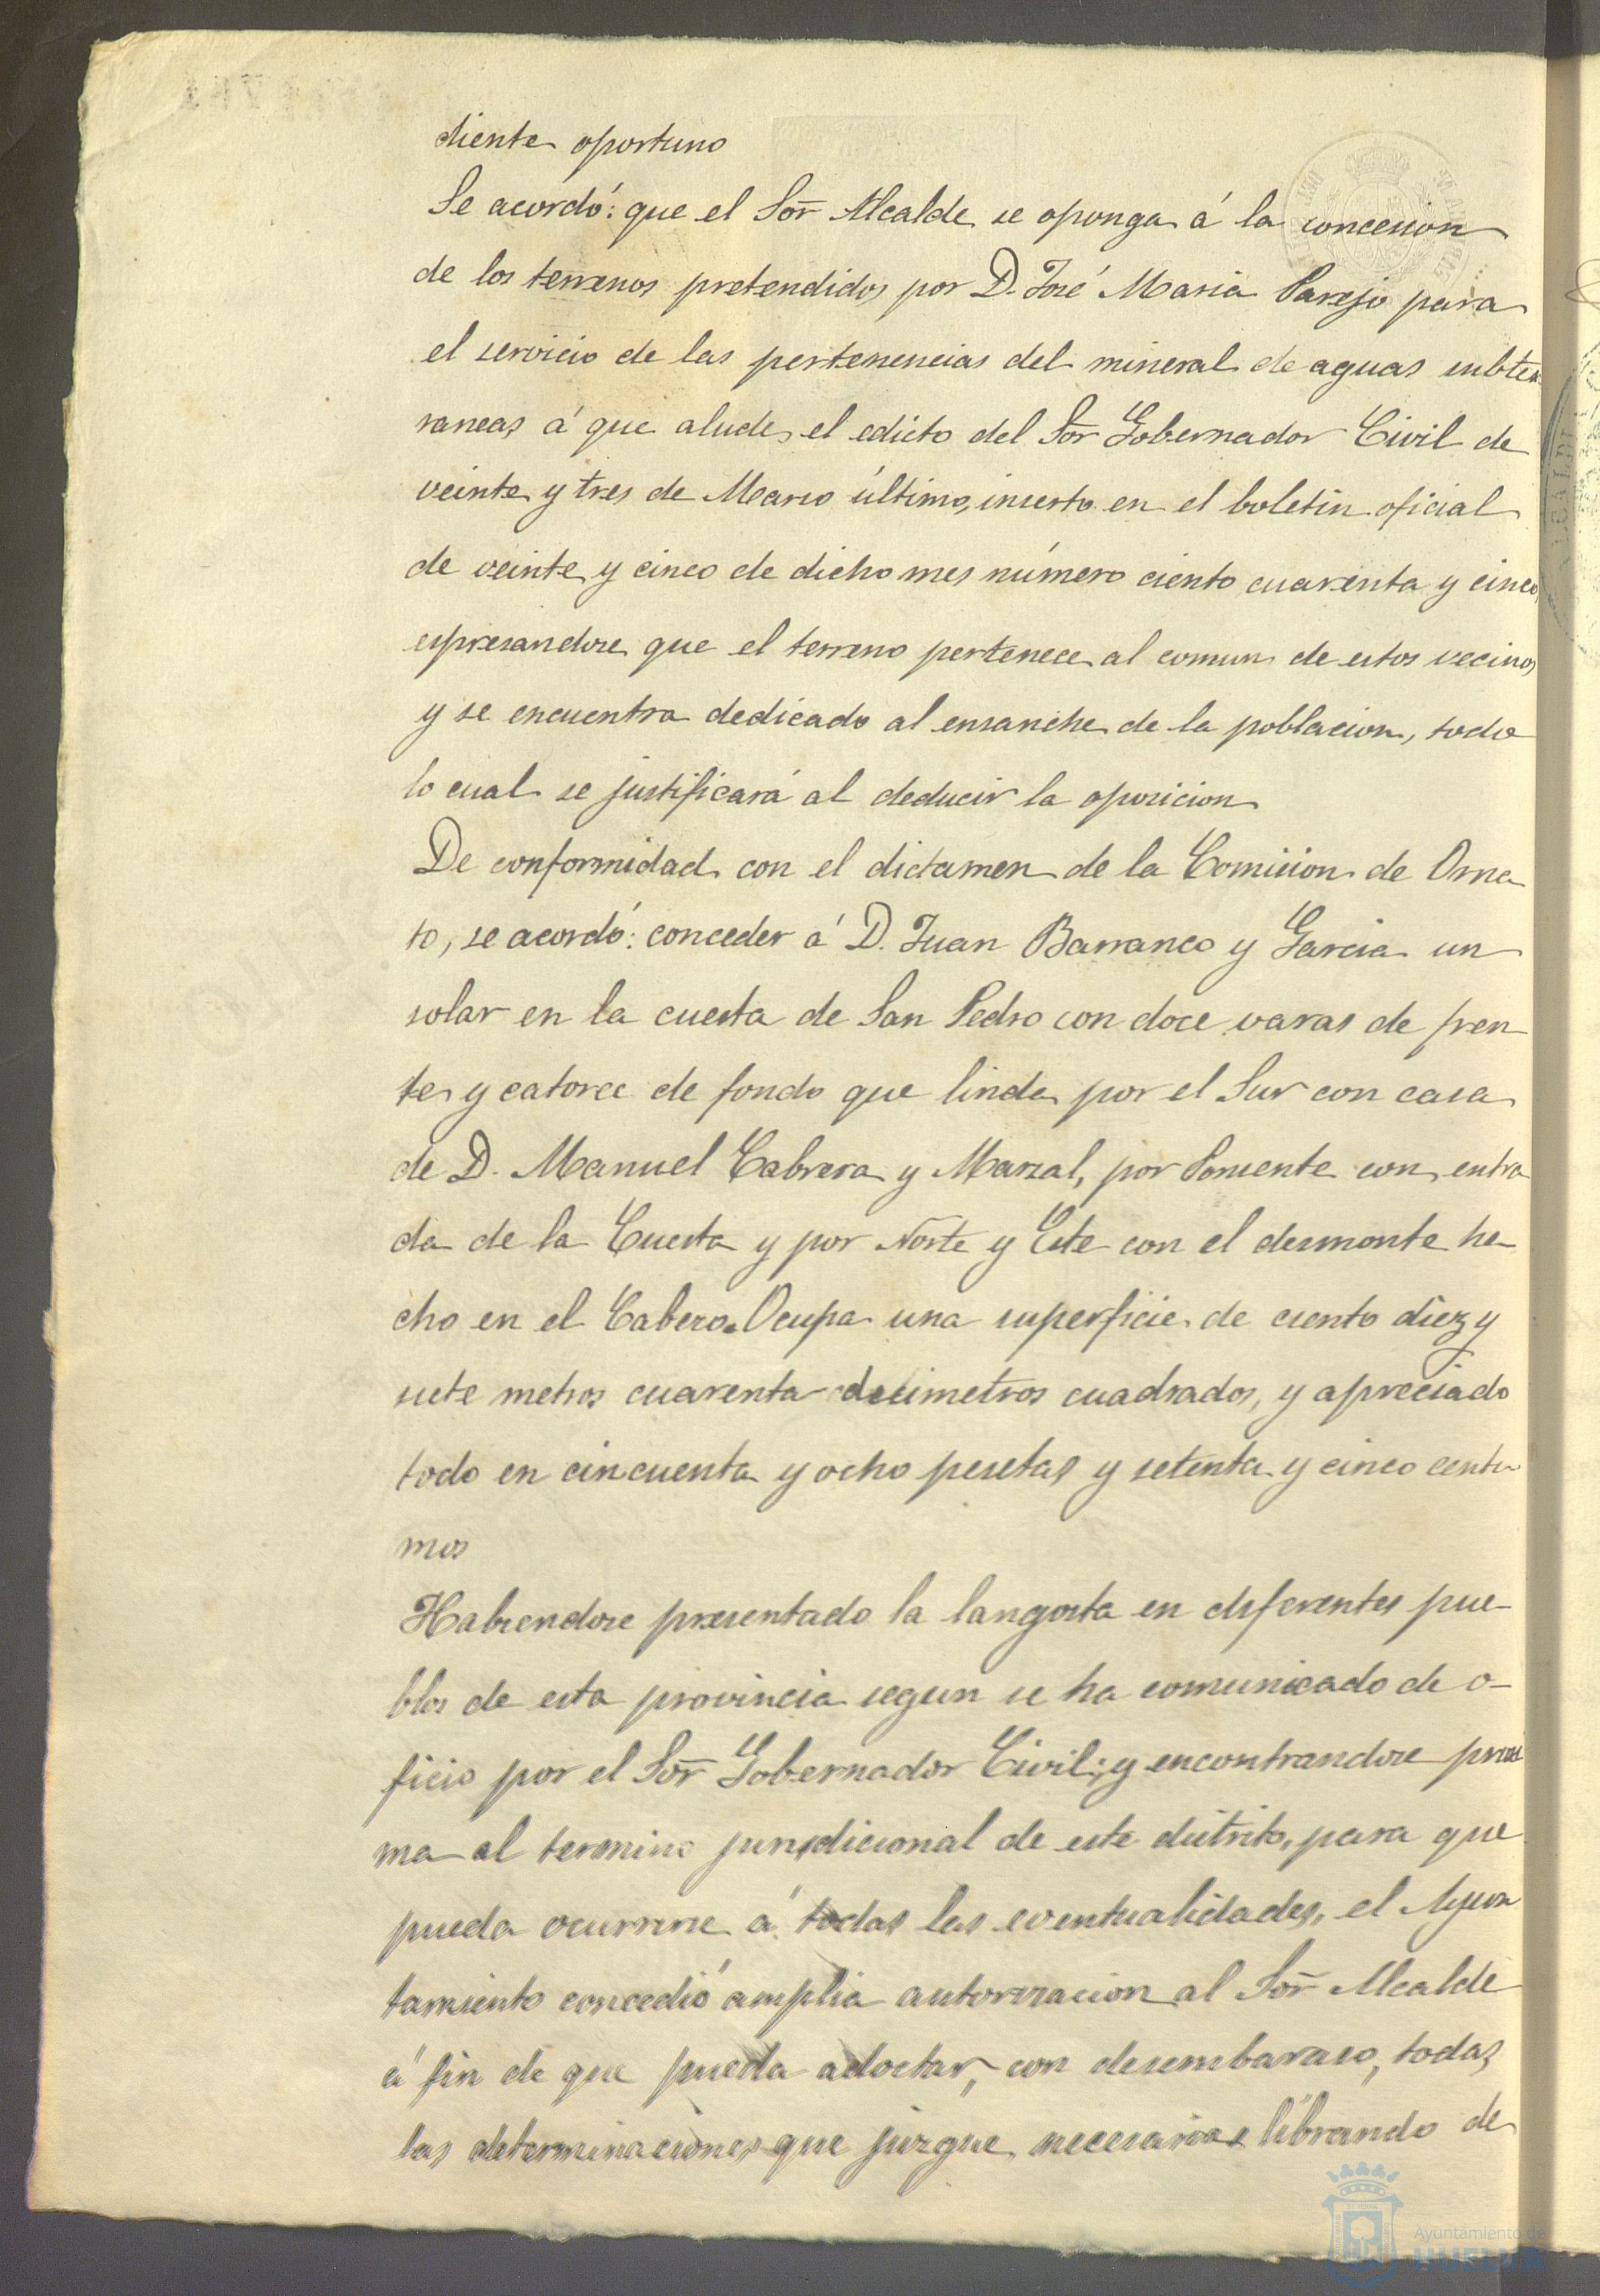 diente oportuno
Se acordó: que el Sor̄ Alcalde se oponga á la concesion
de los terrenos pretendidos por D. José Maria Parejo para
el servicio de las pertenencias del mineral de aguas subter
raneas á que alude el edicto del Sor̄ Gobernador Civil de
veinte y tres de Marzo último, inserto en el boletin oficial
de veinte y cinco de dicho mes número ciento cuarenta y cinco,
espresandose que el terreno pertenece al comun de estos vecinos
y se encuentra dedicado al ensanche de la poblacion, todo
lo cual se justificará al deducir la oposicion
De conformidad con el dictamen de la Comision de Orna
to, se acordó: conceder á D. Juan Barranco y Garcia un
solar en la cuesta de San Pedro con doce varas de fren
te y catorce de fondo que linda por el Sur con casa
de D. Manuel Cabrera y Marzal, por Poniente con entra
da de la Cuesta y por Norte y Este con el desmonte he-
cho en el Cabezo. Ocupa una superficie de ciento diez y
siete metros cuarenta decimetros cuadrados, y apreciado
todo en cincuenta y ocho pesetas y setenta y cinco centi
mos
Habiendose presentado la langosta en diferentes pue-
blos de esta provincia segun se ha comunicado de o-
ficio por el Sor̄ Gobernador Civil; y encontrandose proxi
ma al termino jurisdicional de este distrito, para que
pueda ocurrirse á todas las eventualidades, el Ayun
tamiento concedió amplia autorizacion al Sor̄ Alcalde
á fin de que pueda adoctar, con desembarazo, todas
las determinaciones que juzgue necesarias librando de
Ayuntamiento de
HUELVA